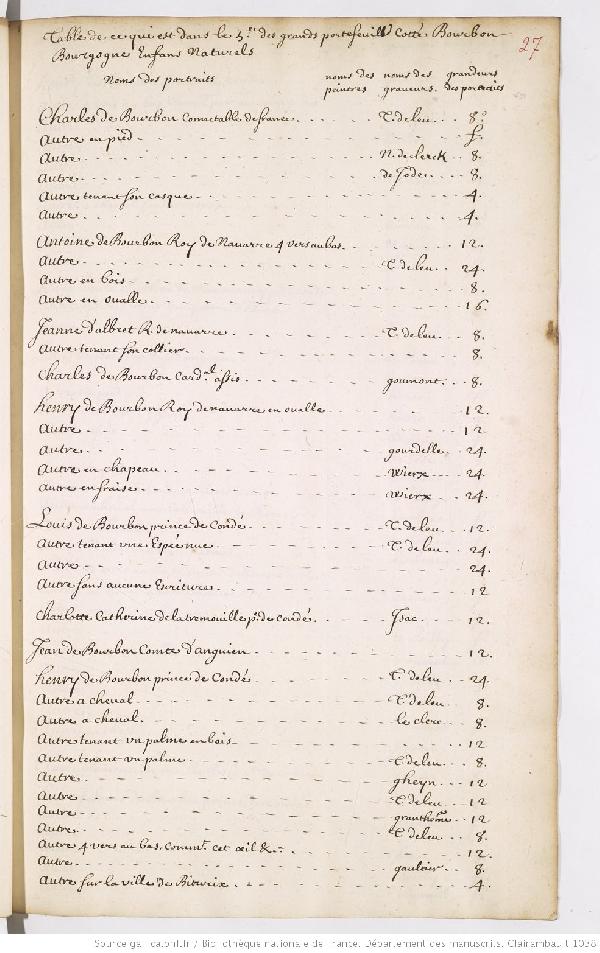 Table de ce qui est dans le 5.e des grands portefeuill. Cotté Bourbon
Bourgogne Enfans Naturels
27
Noms des portraits noms des peintres noms des graveurs grandeurs des portraits
Charles de Bourbon Connetable de france T. de leu 8.o
Autre en pied f.
Autre N. de clerck 8.
Autre de Jode 8.
Autre tenant son casque 4.
Autre 4.
Antoine de Bourbon Roy de Navarre 4 vers au bas 12.
Autre T. de leu 24.
Autre en bois 8.
Autre en ovalle 16.
Jeanne d'albret R. de navarre T. de leu 8.
Autre tenant son collier 8.
Charles de Bourbon Card.l assis goumont 8.
henry de Bourbon Roy de navarre en ovalle 12.
Autre 12.
Autre gourdelle 24.
Autre en chapeau Wierx 24.
Autre en fraise Wierx 24.
Louis de Bourbon prince de Condé T. de leu 12.
Autre tenant vne Espée nue T. de leu 24.
Autre 24.
Autre sans aucune Escriture 12
Charlotte Catherine de la tremouille p. de Condé Isac 12.
Jean de Bourbon Comte d'anguien 12.
henry de Bourbon prince de Condé T. de leu 24.
Autre a cheval T. de leu 8.
Autre a cheval le clerc 8.
Autre tenant vn palme en bois 12
Autre tenant vn palme T. de leu 8.
Autre gheyn 12
Autre T. de leu 12
Autre granthome 12
Autre T. de leu 8.
Autre 4 vers au bas, comm.t cet œil &c 12.
Autre gaultier 8.
Autre sur la ville de 4.
Source gallica.bnf.fr / Bibliothèque nationale de France. Département des manuscrits. Clairambault 1038